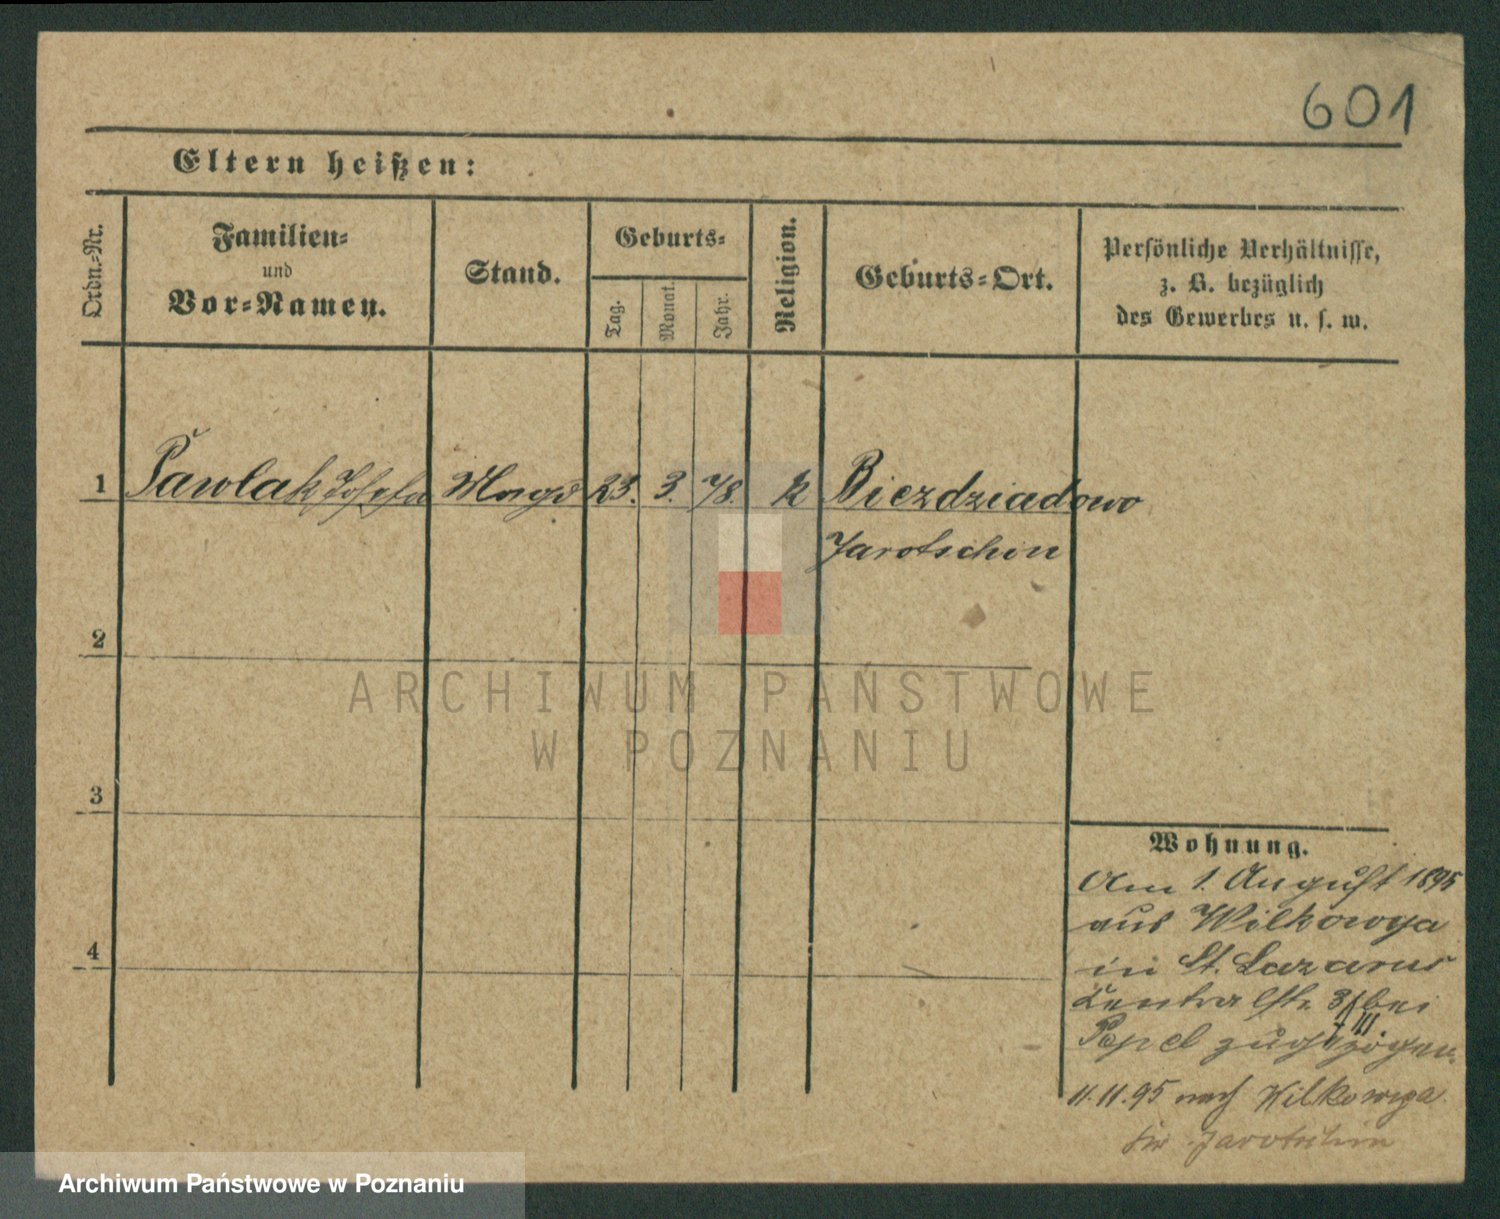 601
Eltern heißen:
Ordn.-Nr.
Familien-
und
Vor-Namen.
Stand.
Geburts-
Tag.
Monat.
Jahr.
Religion.
Geburts-Ort.
Persönliche Verhältnisse,
z. B. bezüglich
des Gewerbes u. s. w.
1 Pawlak Josefa Magd 23. 3. 78. k Biezdziadowo
Jarotschin
2
3
4
Wohnung.
Am 1. August 1895
aus Wilkowya
in St. Lazarus
Centralstr. bei
III
zugezogen.
11.11.95 nach Wilkowya
Jarotschin
ARCHIWUM PAŃSTWOWE
W POZNANIU
Archiwum Państwowe w Poznaniu